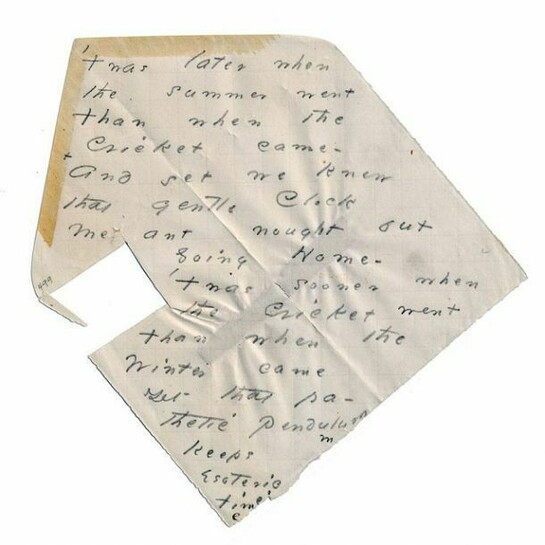 'Twas later when
the summer went
than when the
Cricket came -
+ And yet we knew
that gentle Clock
meant nought but
Going Home -
'Twas sooner when
the Cricket went
than when the
Winter came
Yet that pa-
thetic Pendulum
keeps
esoteric
time
499